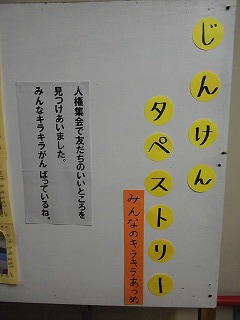 じんけん
タペストリー
みんなのキラキラあつめ
人権集会で友だちのいいところを
見つけあいました。
みんなキラキラがんばっているね。